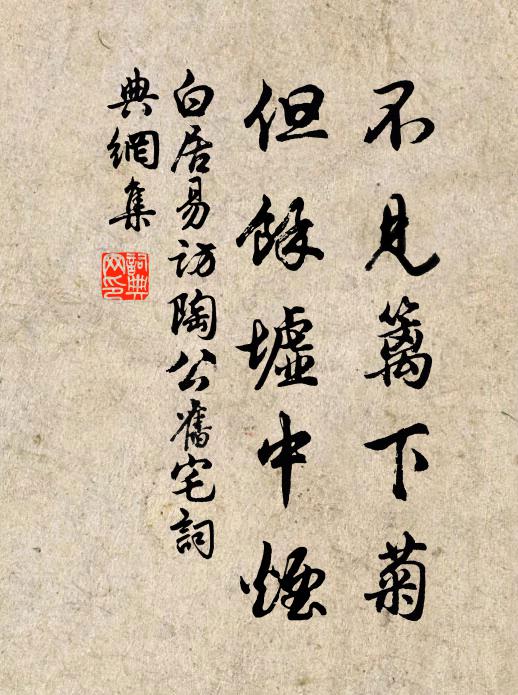 不見籬下菊
但餘墟中煙
白居易訪陶公舊宅詞
典網集
詞典
网印